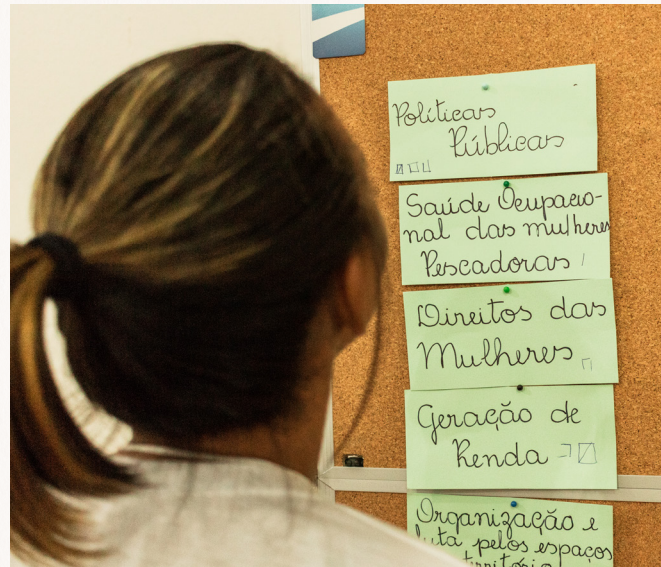 Políticas
Públicas
Saúde Ocupacio-
nal das mulheres
Pescadoras
Direitos das
Mulheres
Geração de
Renda
Organização e
luta pelos espaços
território